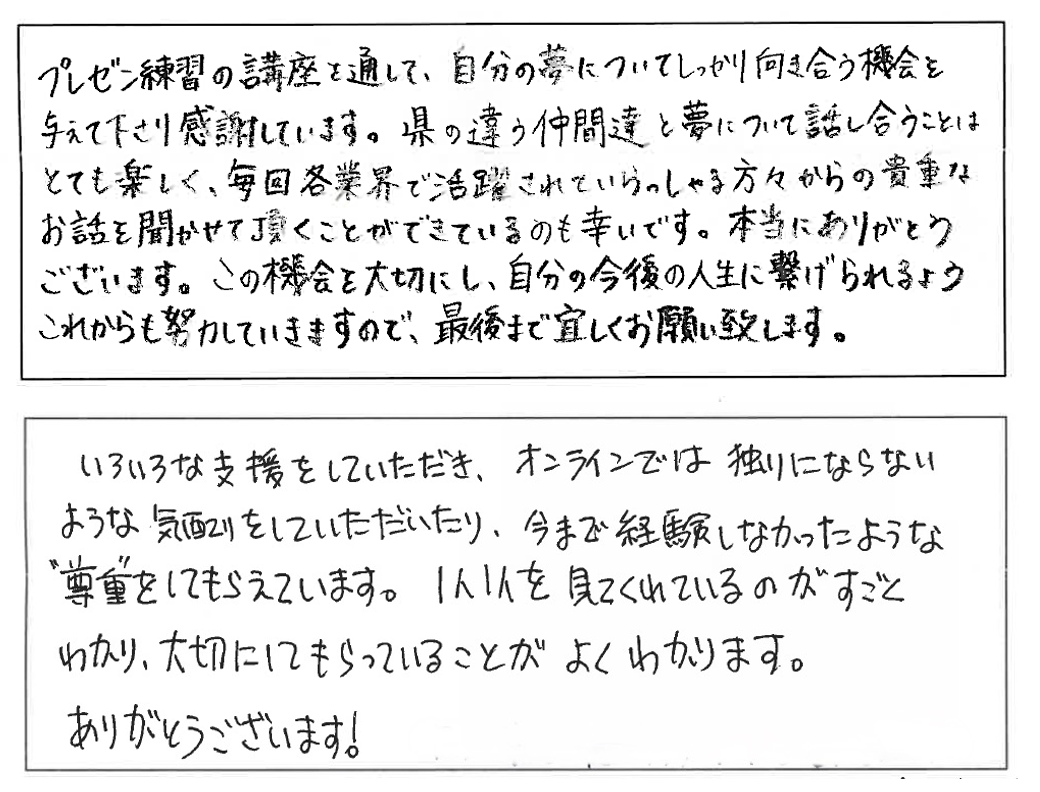 プレゼン練習の講座を通して、自分の夢についてしっかり向き合う機会を
与えて下さり感謝しています。県の違う仲間達と夢について話し合うことは
とても楽しく、毎回各業界で活躍されていらっしゃる方々からの貴重な
お話を聞かせて頂くことができているのも幸いです。本当にありがとう
ございます。この機会を大切にし、自分の今後の人生に繋げられるよう
これからも努力していきますので、最後まで宜しくお願い致します。
いろいろな支援をしていただき、オンラインでは独りにならない
ような気配りをしていただいたり、今まで経験しなかったような
"尊重"をしてもらえています。1人1人を見てくれているのがすごく
わかり、大切にしてもらっていることがよくわかります。
ありがとうございます!